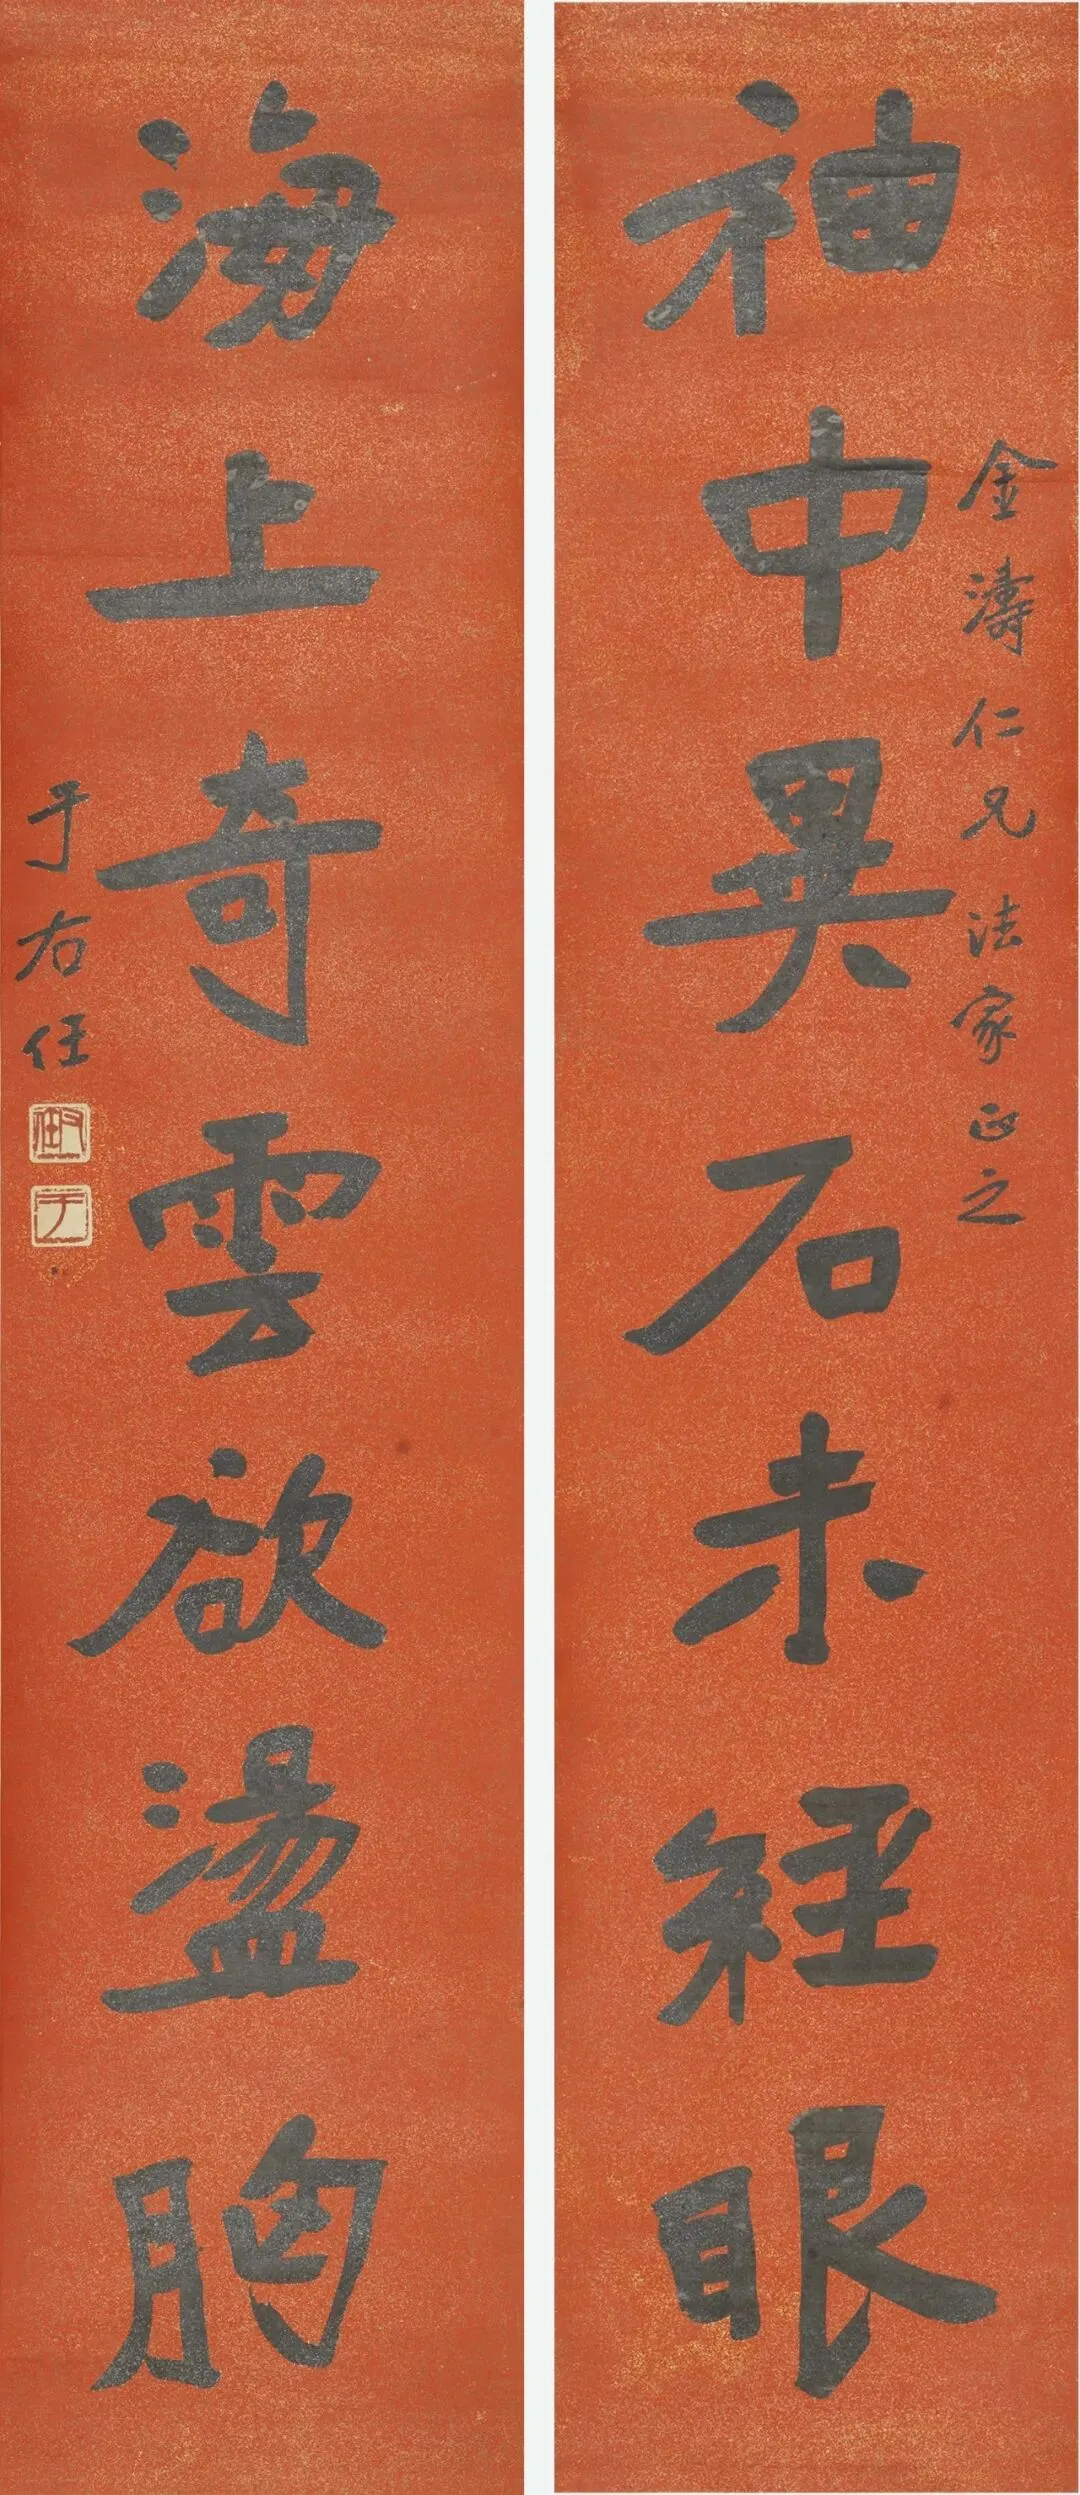 金濤仁兄法家正之
袖中異石未經眼
海上奇雲欲盪胸
于右任